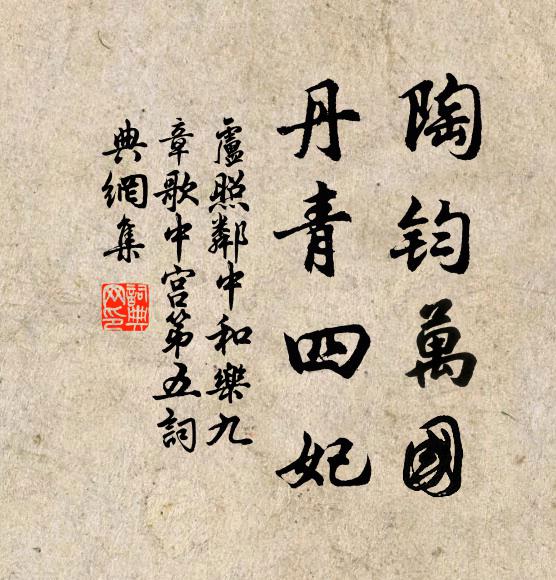 陶鈞萬國
丹青四妃
盧照鄰中和樂九
章歌中宮第五詞
典網集
詞典
网印